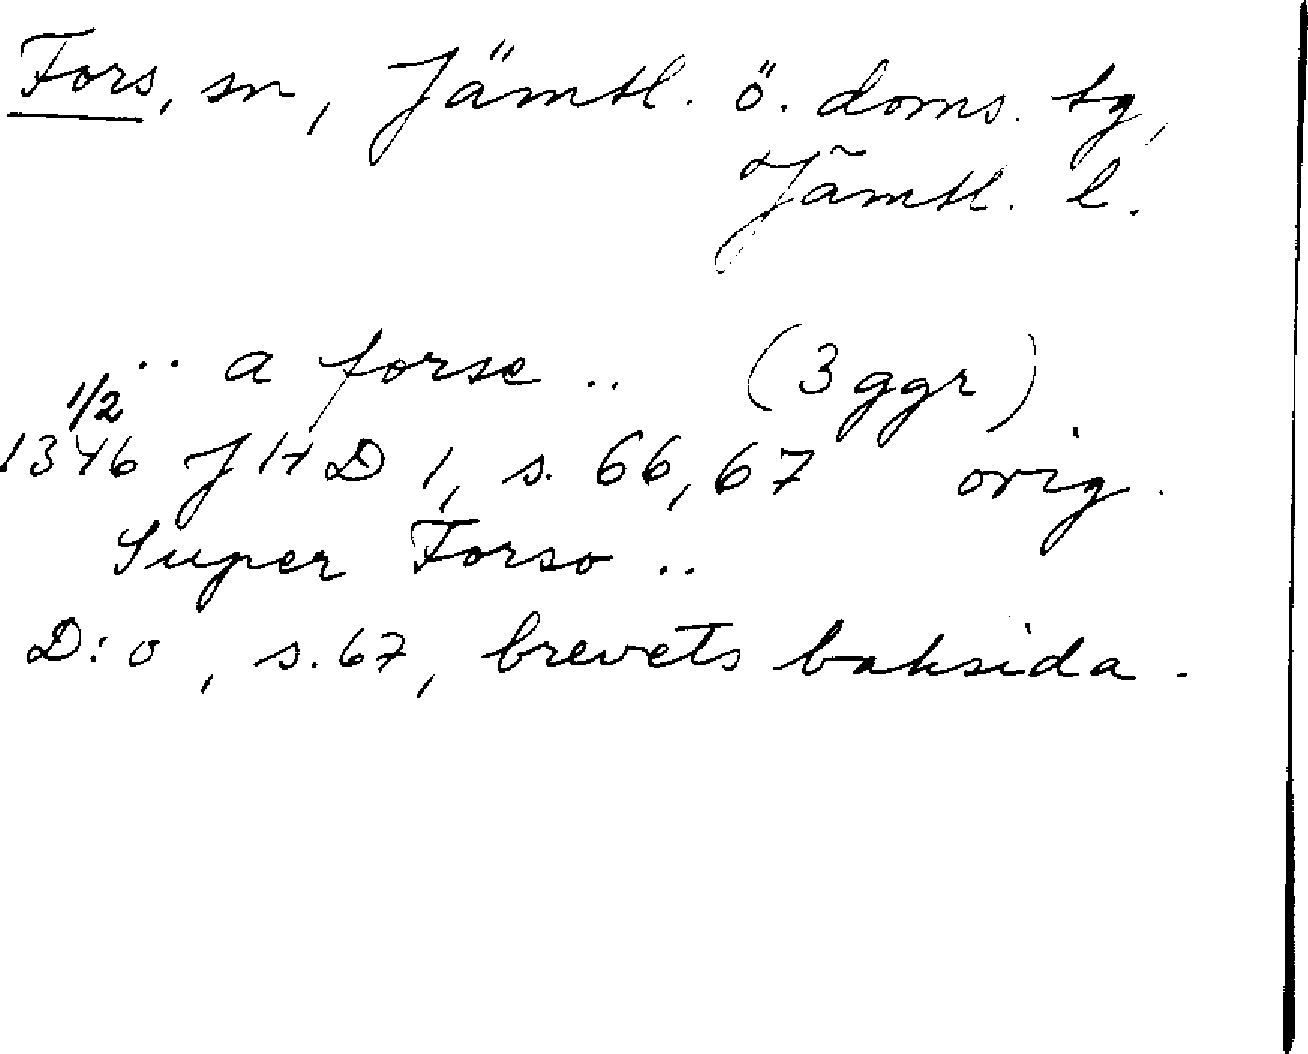 Fors, sn, Jämtl. ö. doms. tg,
Jämtl. l.
.. a forse .. (3 ggr)
1/2
1346 JHD 1, s. 66, 67 orig.
Super Forso ..
D:o, s. 67, brevets baksida.